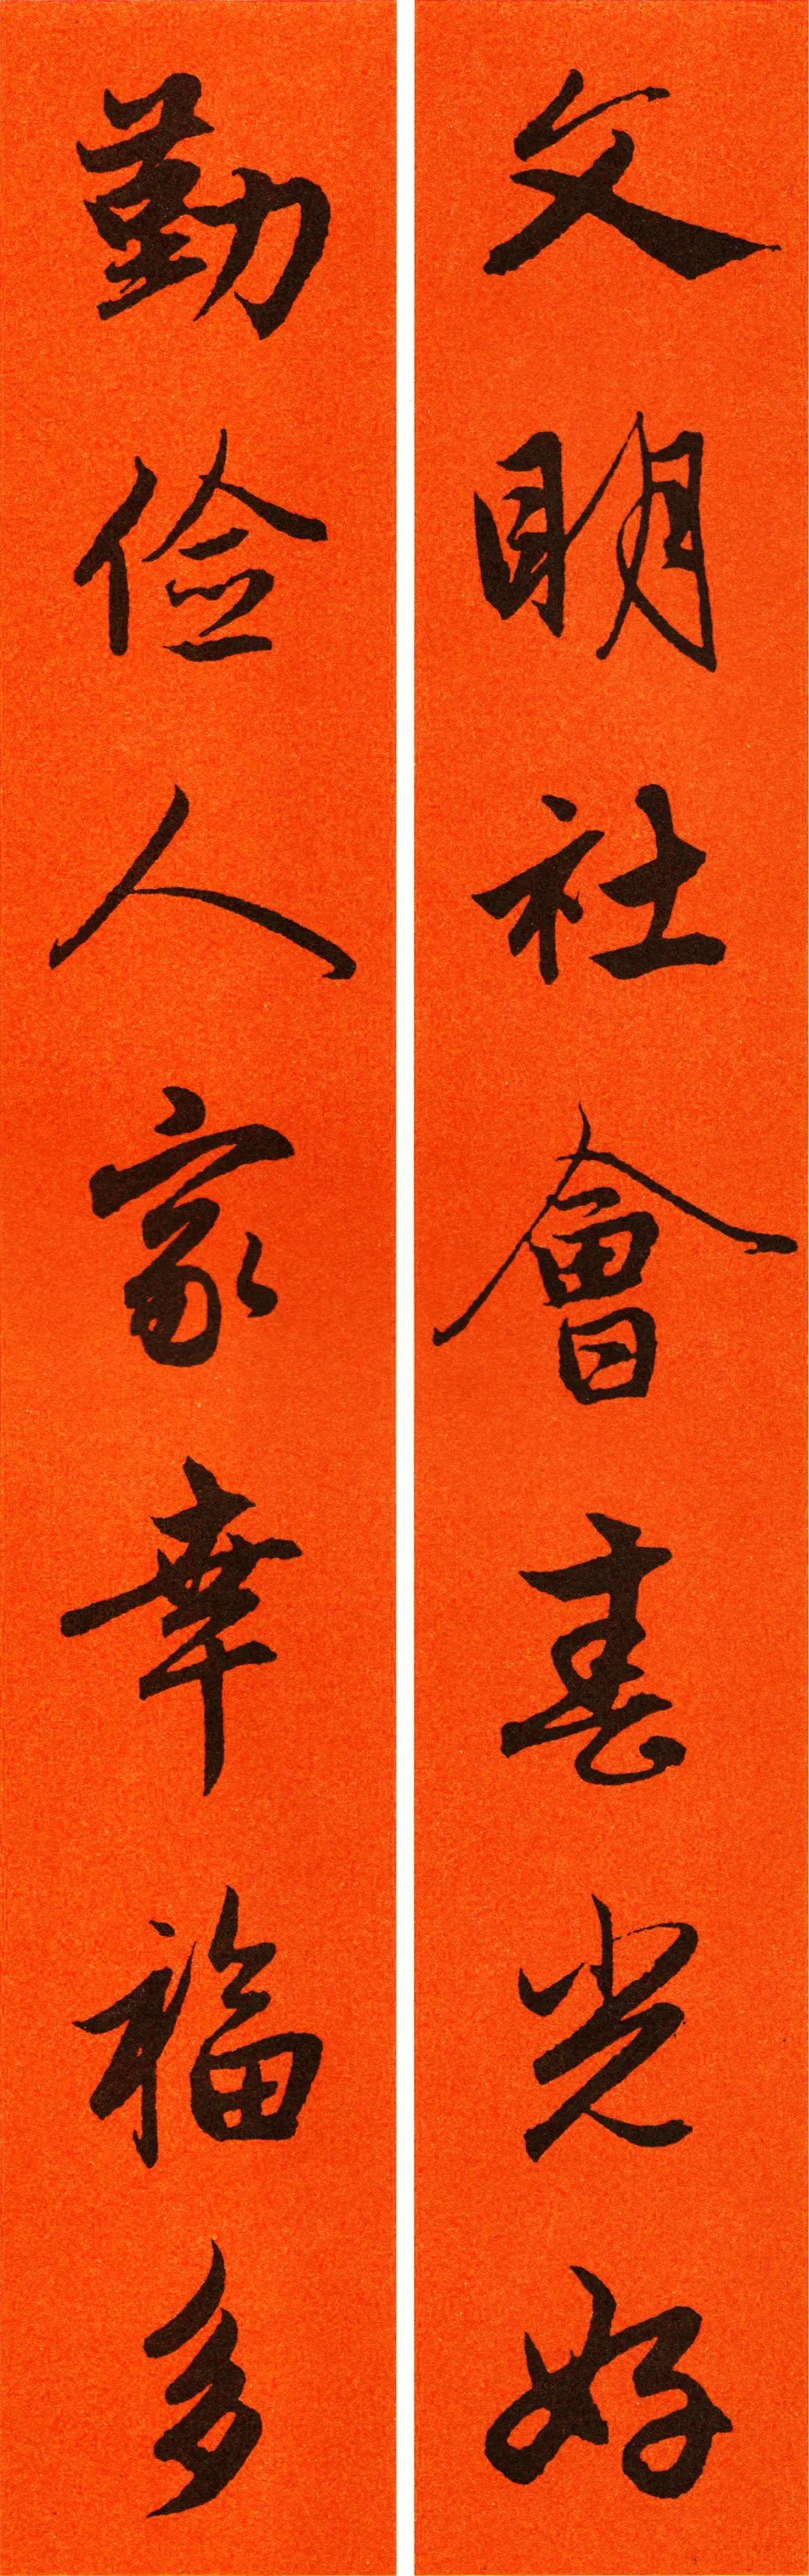 文明社會春光好
勤俭人家幸福多